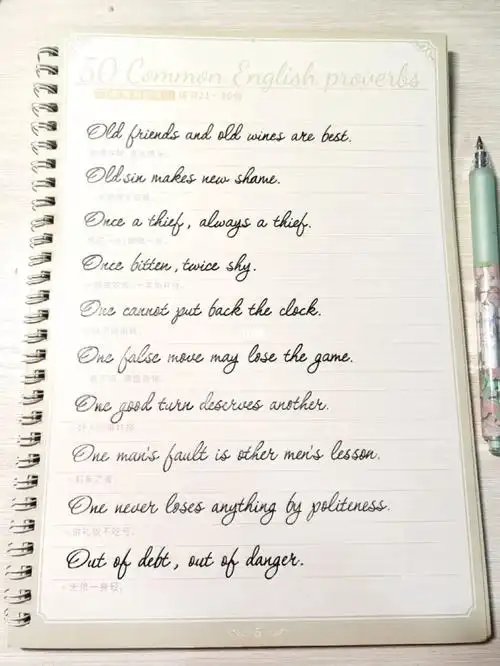 50 Common English proverbs
Old friends and old wines are best.
Old sin makes new shame.
Once a thief, always a thief.
Once bitten, twice shy.
One cannot put back the clock.
One false move may lose the game.
One good turn deserves another.
One man's fault is other men's lesson.
One never loses anything by politeness.
Out of debt, out of danger.
无债一身轻。
5